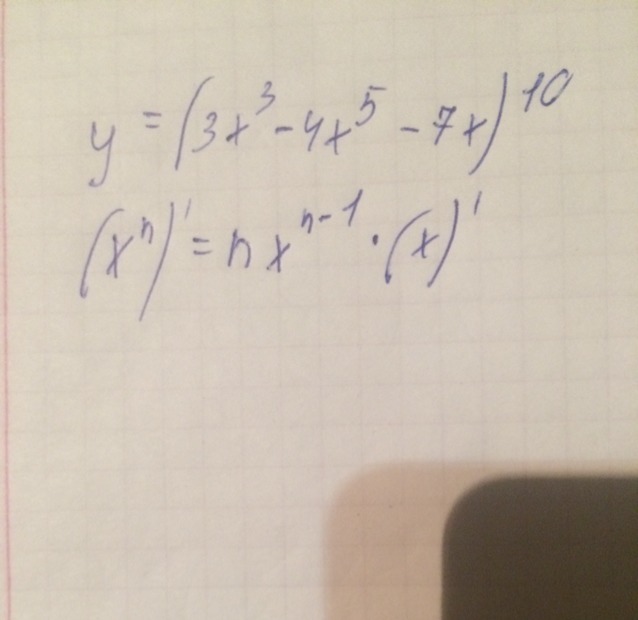 y = (3x³ - 4x⁵ - 7x)¹⁰
(xⁿ)' = nxⁿ⁻¹ · (x)'